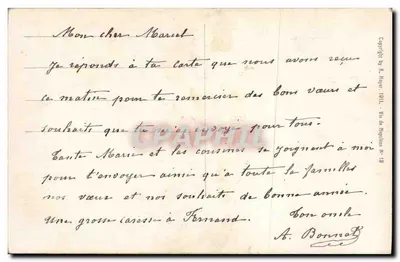 Mon cher Marcel
Je réponds à ta carte que nous avons reçu
ce matin pour te remercier des bons vœux et
souhaits que tu m'a envoyé pour tous.
Tante Marie et les cousines se joignent à moi
pour t'envoyer ainsi qu'a toute la familles
nos vœux et nos souhaits de bonne année.
Une grosse caresse à Fernand.
Ton oncle
A. Bonnat
Copyright by A. Noyer 1911. Vie de Napoléon Nº 18